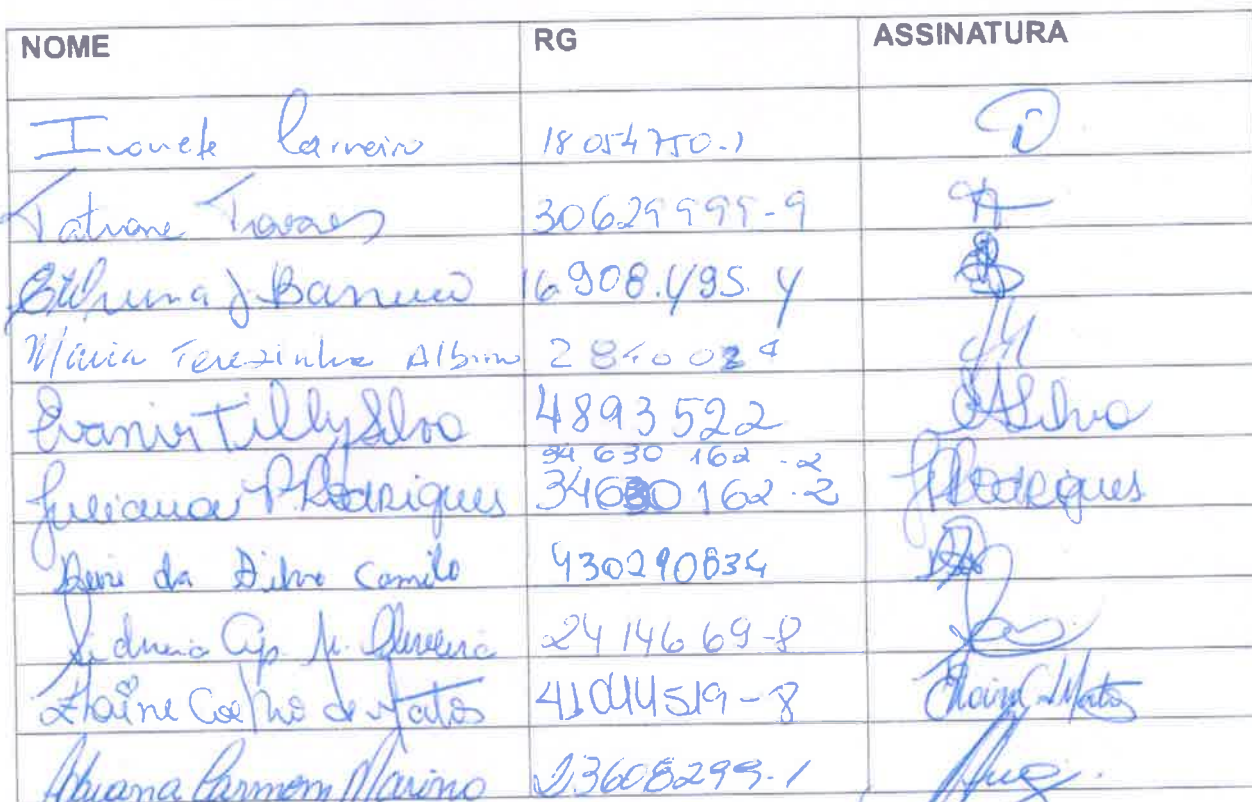 NOME RG ASSINATURA
Ivonete Carneiro 18 054 750-1
Tatiane Tavares 30629999-9
16.908.495.4
Maria Terezinha Albino
Evanir Tilly Silva 4893522 ETSilva
34 630 162 -2
Juliana P. Rodrigues 34630162-2 JPRodrigues
da Silva Camilo 430290834
Sidneia Ap. M. Oliveira 24 146 69-8
Elaine Coelho de Matos 41044519-8 Elaine C d Matos
Marino 23608299-1